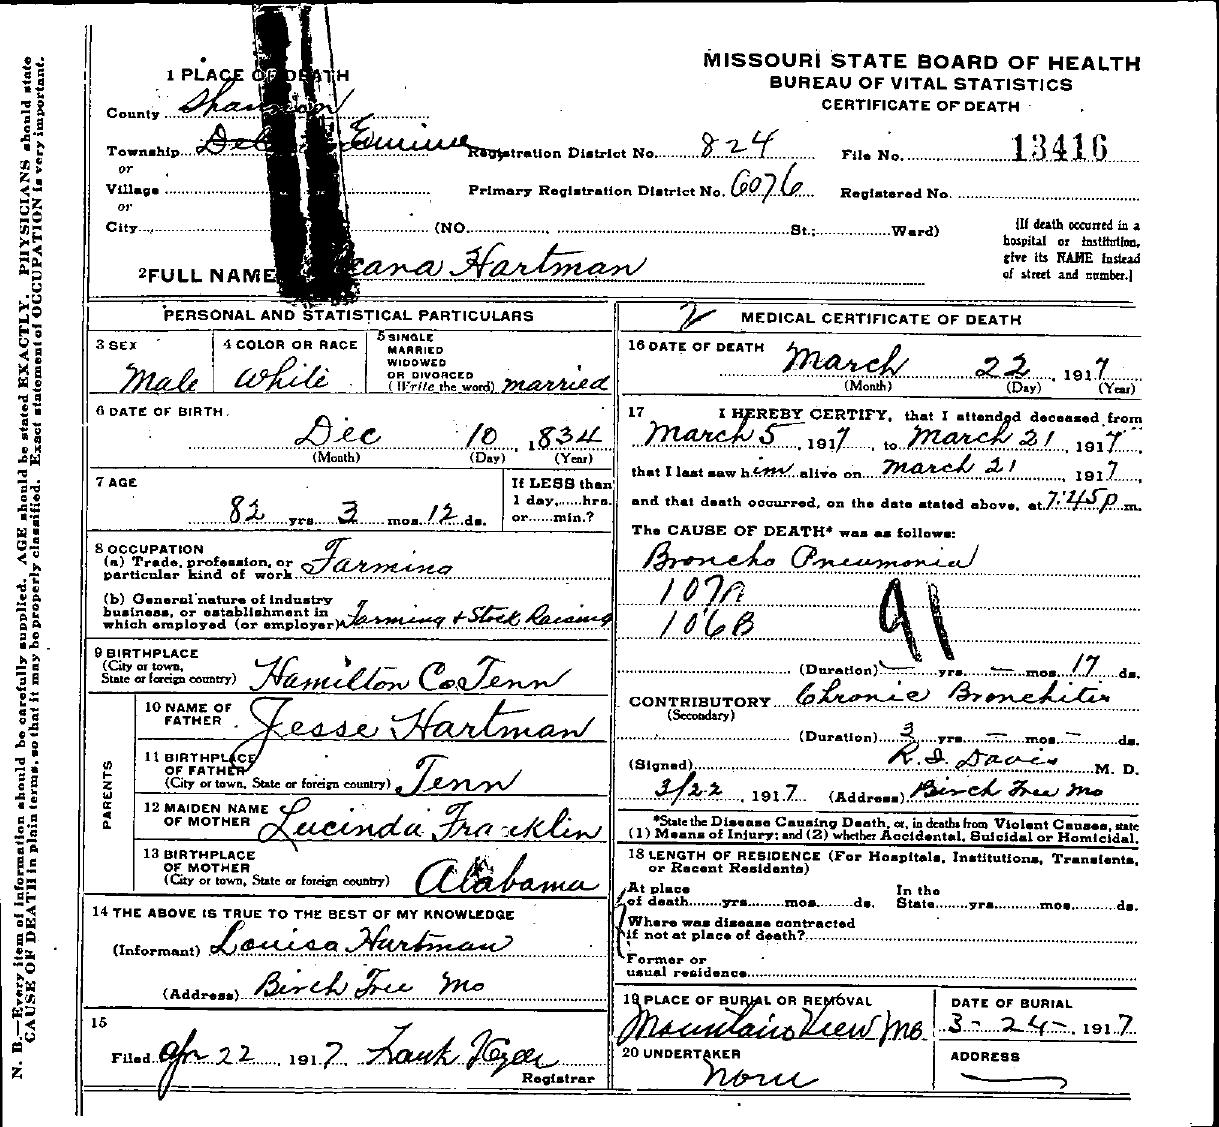 MISSOURI STATE BOARD OF HEALTH
BUREAU OF VITAL STATISTICS
CERTIFICATE OF DEATH
1 PLACE OF DEATH
County Shannon
Township Eminence Registration District No. 824 File No. 13416
or
Village Primary Registration District No. 6076 Registered No.
or
City (NO. St.; Ward)
(If death occurred in a
hospital or institution,
give its NAME instead
of street and number.]
2 FULL NAME Hartman
PERSONAL AND STATISTICAL PARTICULARS
3 SEX
Male
4 COLOR OR RACE
White
5 SINGLE
MARRIED
WIDOWED
OR DIVORCED
(Write the word) married
6 DATE OF BIRTH
Dec 10, 1834
(Month) (Day) (Year)
7 AGE
82 yrs. 3 mos. 12 ds.
If LESS than
1 day,......hrs.
or......min.?
8 OCCUPATION
(a) Trade, profession, or
particular kind of work Farming
(b) General nature of industry
business, or establishment in
which employed (or employer) Farming + Stock Raising
9 BIRTHPLACE
(City or town,
State or foreign country) Hamilton Co. Tenn
PARENTS
10 NAME OF
FATHER Jesse Hartman
11 BIRTHPLACE
OF FATHER
(City or town, State or foreign country) Tenn
12 MAIDEN NAME
OF MOTHER Lucinda Franklin
13 BIRTHPLACE
OF MOTHER
(City or town, State or foreign country) Alabama
14 THE ABOVE IS TRUE TO THE BEST OF MY KNOWLEDGE
(Informant) Louisa Hartman
(Address) Birch Tree Mo
15
Filed Apr 22, 1917 Frank
Registrar
2 MEDICAL CERTIFICATE OF DEATH
16 DATE OF DEATH March 22, 1917
(Month) (Day) (Year)
17 I HEREBY CERTIFY, that I attended deceased from
March 5, 1917, to March 21, 1917,
that I last saw him alive on March 21, 1917,
and that death occurred, on the date stated above, at 7:45 p m.
The CAUSE OF DEATH* was as follows:
Broncho Pneumonia
107A
91
106B
(Duration) — yrs. — mos. 17 ds.
CONTRIBUTORY Chronic Bronchitis
(Secondary)
(Duration) 3 yrs. — mos. — ds.
(Signed) R. I. Davis M. D.
3/22, 1917 (Address) Birch Tree Mo
*State the Disease Causing Death, or, in deaths from Violent Causes, state
(1) Means of Injury; and (2) whether Accidental, Suicidal or Homicidal.
18 LENGTH OF RESIDENCE (For Hospitals, Institutions, Transients,
or Recent Residents)
At place
of death......yrs......mos......ds.
In the
State......yrs......mos......ds.
Where was disease contracted
if not at place of death?
Former or
usual residence
19 PLACE OF BURIAL OR REMOVAL
Mountain View Mo.
DATE OF BURIAL
3-24-, 1917
20 UNDERTAKER
None
ADDRESS
N. B.—Every item of information should be carefully supplied. AGE should be stated EXACTLY. PHYSICIANS should state
CAUSE OF DEATH in plain terms, so that it may be properly classified. Exact statement of OCCUPATION is very important.